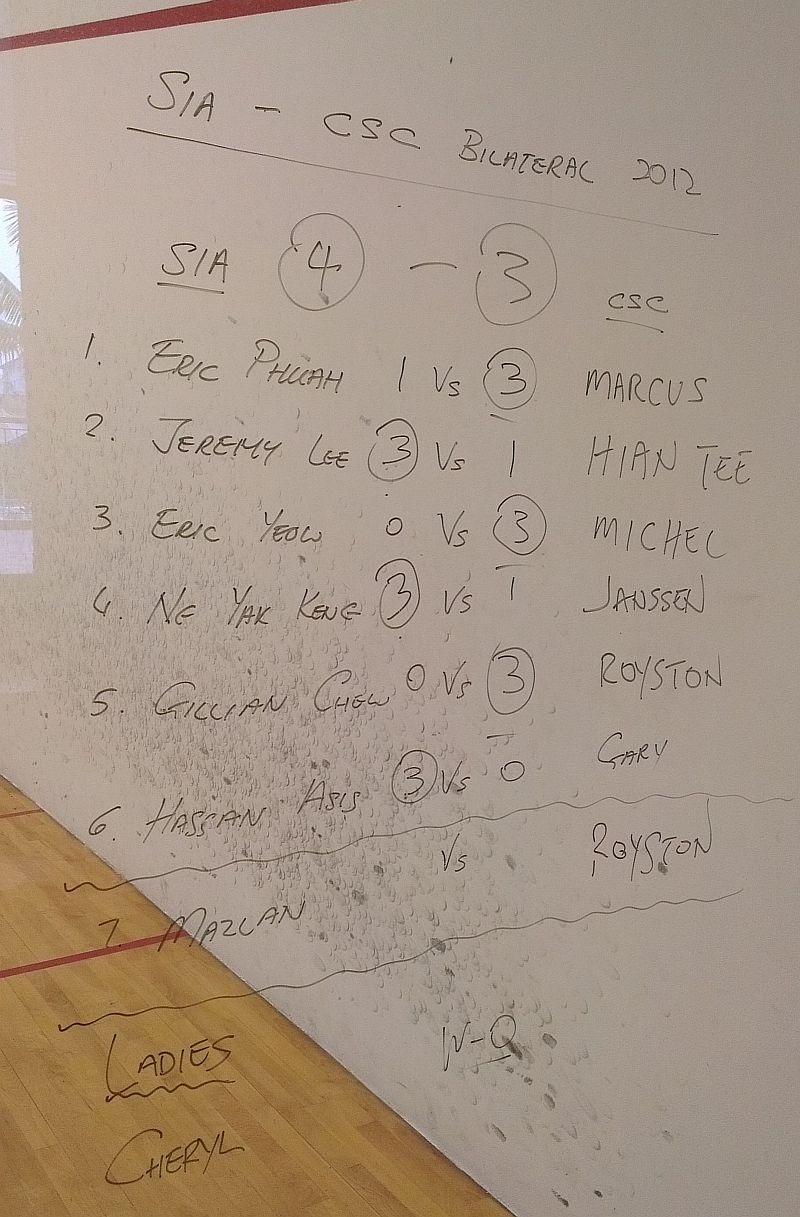 SIA - CSC BILATERAL 2012
SIA 4 - 3 CSC
1. ERIC PHUAH 1 Vs 3 MARCUS
2. JEREMY LEE 3 Vs 1 HIAN TEE
3. ERIC YEOW 0 Vs 3 MICHEL
4. NG YAK KENG 3 Vs 1 JANSSEN
5. GILLIAN CHEW 0 Vs 3 ROYSTON
6. HASSAN ASIS 3 Vs 0 GARY
7. MAZLAN Vs ROYSTON
LADIES W-Q
CHERYL